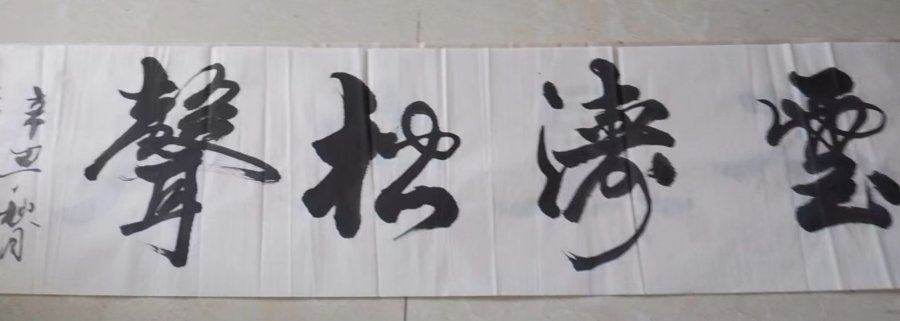 雲濤松聲
辛丑秋月